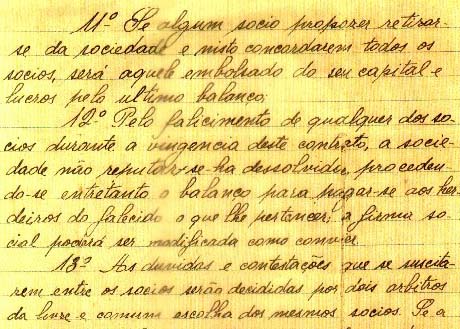 11º Se algum socio propozer retirar-
se da sociedade e nisto concordarem todos os
socios, será aquele embolsado do seu capital e
lucros pelo ultimo balanço;
12º Pelo falicimento de qualquer dos so-
cios durante a vingencia deste contrato, a socie-
dade não reputar-se-ha dessolvida, proceden-
do-se entretanto o balanço para pagar-se aos her-
deiros do falecido o que lhe pertencer; a firma so-
cial podará ser modificada como convier.
13º As duvidas e contestações que se suscita-
rem entre os socios serão decididas por dois arbitros
da livre e comum escolha dos mesmos socios. Se a